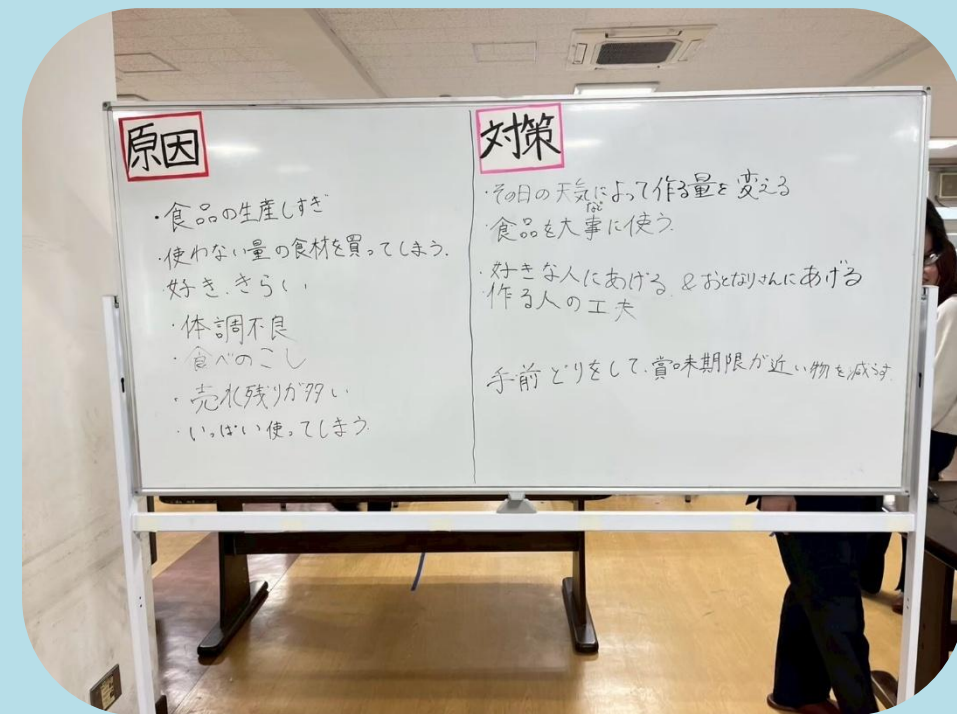 原因
・食品の生産しすぎ
・使わない量の食材を買ってしまう.
好き.きらい
・体調不良
・食べのこし
・売れ残りが多い
・いっぱい使ってしまう.
対策
・その日の天気によって作る量を変える
など
・食品を大事に使う.
・好きな人にあげる &おとなりさんにあげる
作る人の工夫
手前どりをして、賞味期限が近い物を減らす.